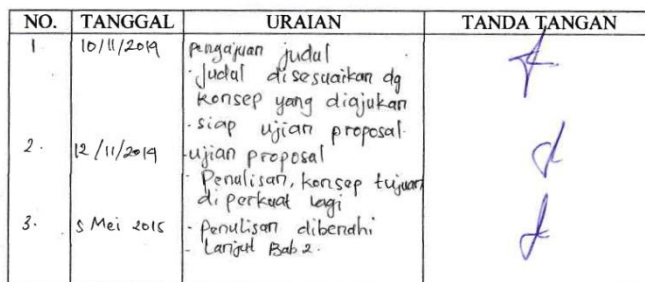 NO. TANGGAL URAIAN TANDA TANGAN
1. 10/11/2014 pengajuan judul
- Judul disesuaikan dg
konsep yang diajukan
- siap ujian proposal.
2. 12/11/2014 - ujian proposal
- Penulisan, konsep tujuan
diperkuat lagi
3. 5 Mei 2015 - Penulisan dibenahi
- Lanjut Bab 2.